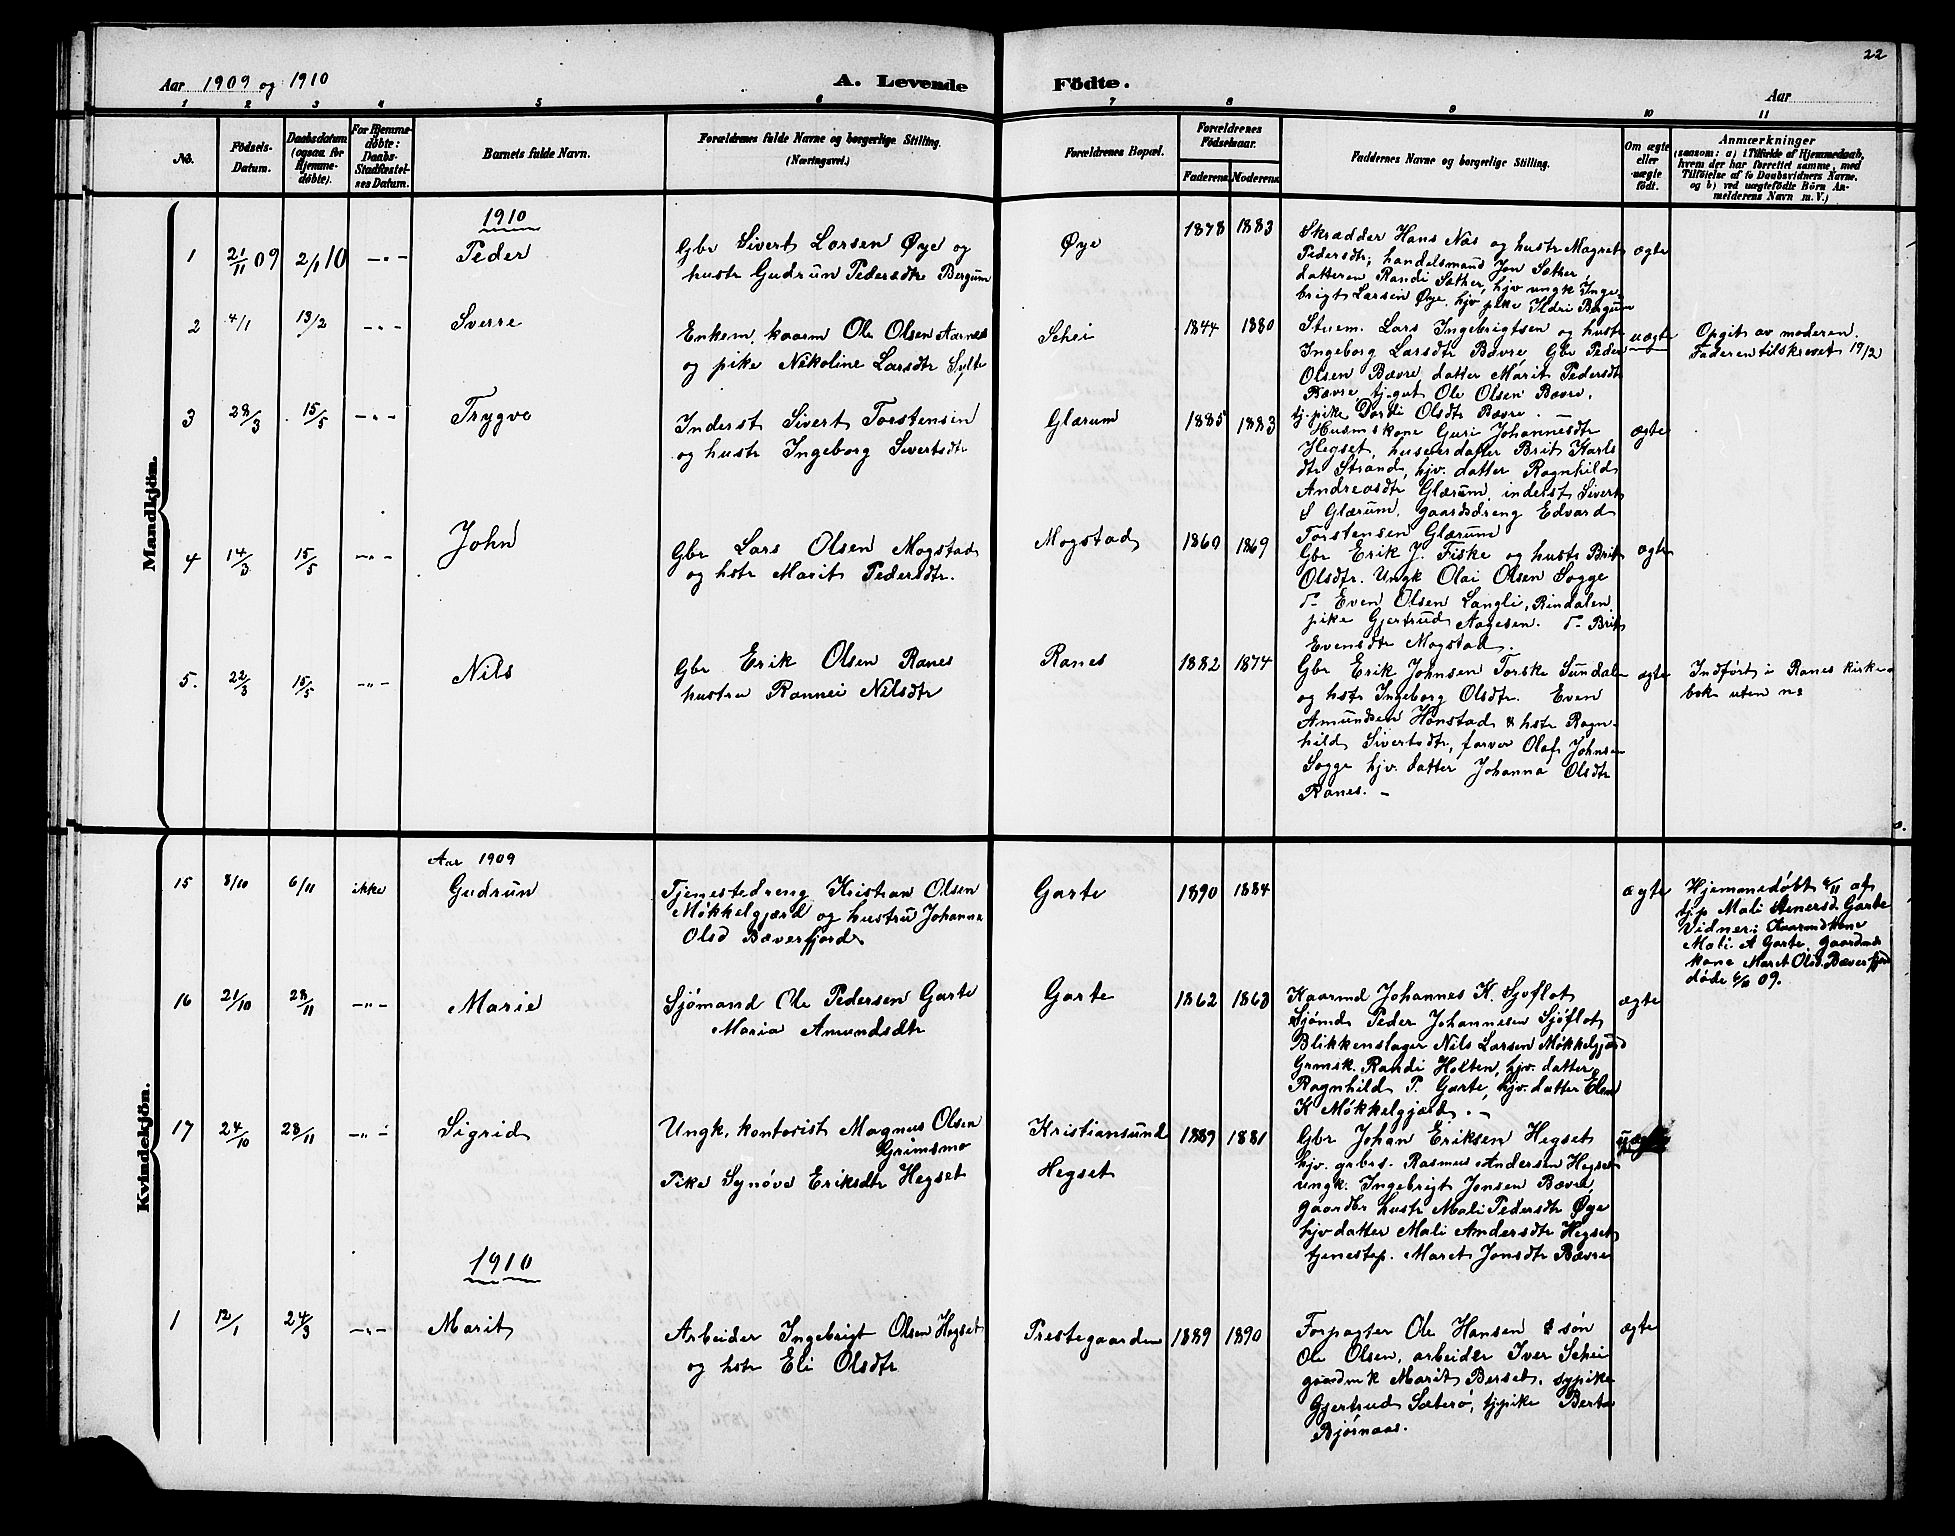 22
Aar 1909 og 1910
A. Levende Födte.
Aar
1 2 3 4 5 6 7 8 9 10 11
No.
Födsels-
Datum.
Daabsdatum
(ogsaa for
Hjemme-
döbte).
For Hjemme-
döbte:
Daabs-
Stadfæstel-
ses Datum.
Barnets fulde Navn.
Forældrenes fulde Navne og borgerlige Stilling.
(Næringsvei.)
Forældrenes Bopæl.
Forældrenes
Födselsaar.
Faderens. Moderens.
Faddernes Navne og borgerlige Stilling.
Om ægte
eller
uægte
födt.
Anmærkninger
(saasom: a) i Tilfælde af Hjemmedaab,
hvem der har forrettet samme, med
Tilföielse af to Daabsvidners Navne.
og b) ved uægtefödte Börn An-
melderens Navn m. V.)
Mandkjön.
1910
1 21/11 09 2/1 10 -"- Peder
Gbr Sivert Larsen Øye og
hustr Gudrun Pedersdtr Bergum
Øye
1878 1883
Skrædder Hans Nås og hustr Magret
Pedersdtr; handelsmand Jon Sæther,
datteren Randi Sæther, hjv ungk Inge-
brigt Larsen Øye, hjv pike Ildri Bergum
ægte
2 4/1 13/2 -"- Sverre
Enkem. kaarm Ole Olsen Aarnes
og pike Nikoline Larsdtr Sylte
Schei
1844 1880
Stuem. Lars Ingebrigtsen og hustr
Ingeborg Larsdtr Bævre, Gbr Peder
Olsen Bævre datter Marit Pedersdtr
Bævre tj.gut Ole Olsen Bævre,
tj.pike Dordi Olsdtr Bævre. —
uægte
Opgit av moderen.
Faderen tilskrevet 19/2
3 28/3 15/5 -"- Trygve
Inderst Sivert Torstensen
og hustr Ingeborg Sivertsdtr
Glærum
1885 1883
Husmskone Guri Johannesdtr
Hegset, huseierdatter Brit Karls
dtr Strand, hjv. datter Ragnhild
Andreasdtr Glærum, inderst Sivert
S Glærum, gaardsdreng Edvard
Torstensen Glærum
ægte
4 14/3 15/5 -"- John
Gbr Lars Olsen Mogstad
og hstr Marit Pedersdtr.
Mogstad
1860 1869
Gbr Erik J. Fiske og hustr Brit
Olsdtr. Ungk Olai Olsen Sogge
d- Even Olsen Langli, Rindalen,
pike Gjertrud Aagesen. d- Brit
Evensdtr Mogstad.
ægte
5. 22/3 15/5 -"- Nils
Gbr Erik Olsen Ranes
hustru Rannei Nilsdtr
Ranes
1882 1874
Gbr Erik Johnsen Torske Sundalen
og hstr Ingeborg Olsdtr. Even
Amundsen Honstad & hstr Ragn-
hild Sivertsdtr, farver Olaf Johnsen
Sogge hjv. datter Johanna Olsdtr
Ranes. —
ægte
Indført i Ranes kirke-
bok uten no
Kvindekjön.
Aar 1909
15 8/10 6/11 ikke Gudrun
Tjenestedreng Kristian Olsen
Møkkelgjærd og hustru Johanne
Olsd Bæverfjord
Garte
1890 1884
ægte
Hjemmedøbt af
tjp Mali Garte
Vidner: Kaarmdkone
Mali A Garte, gaardm
kone Maret Olsd. Bæverfjord
døde 09.
16 21/10 28/11 -"- Marie
Sjömand Ole Pedersen Garte
Maria Amundsdtr
Garte
1862 1863
Kaarmd Johannes K. Sjøflot
Sjømd Peder Johannesen Sjöflot
Blikkenslager Nils Larsen Møkkelgjærd
Grmsk. Randi Holten, hjv. datter
Ragnhild P. Garte, hjv. datter Elen
K Møkkelgjærd. —
ægte
17 24/10 28/11 -"- Sigrid
Ungk, kontorist Magnus Olsen
Grimsmo
Pike Synøve Eriksdtr Hegset
Kristiansund
Hegset
1889 1881
Gbr Johan Eriksen Hegset
hjv. grbrs. Rasmus Andersen Hegset
ungk. Ingebrigt Jonsen Bævre
gaardbr hustr Mali Pedersdtr Øye
hjv datter Mali Andersdtr Hegset
tjenestep. Maret Jonsdtr Bævre
1910
1 12/1 24/3 -"- Marit
Arbeider Ingebrigt Olsen Hegset
og hstr Eli Olsdtr
Prestegaarden
1889 1890
Forpagter Ole Hansen & søn
Ole Olsen, arbeider Iver Schei
gaardmk Marit Berset, sypike
Gjertrud Sæterø, tjpike Berte
Bjørnaas.
ægte